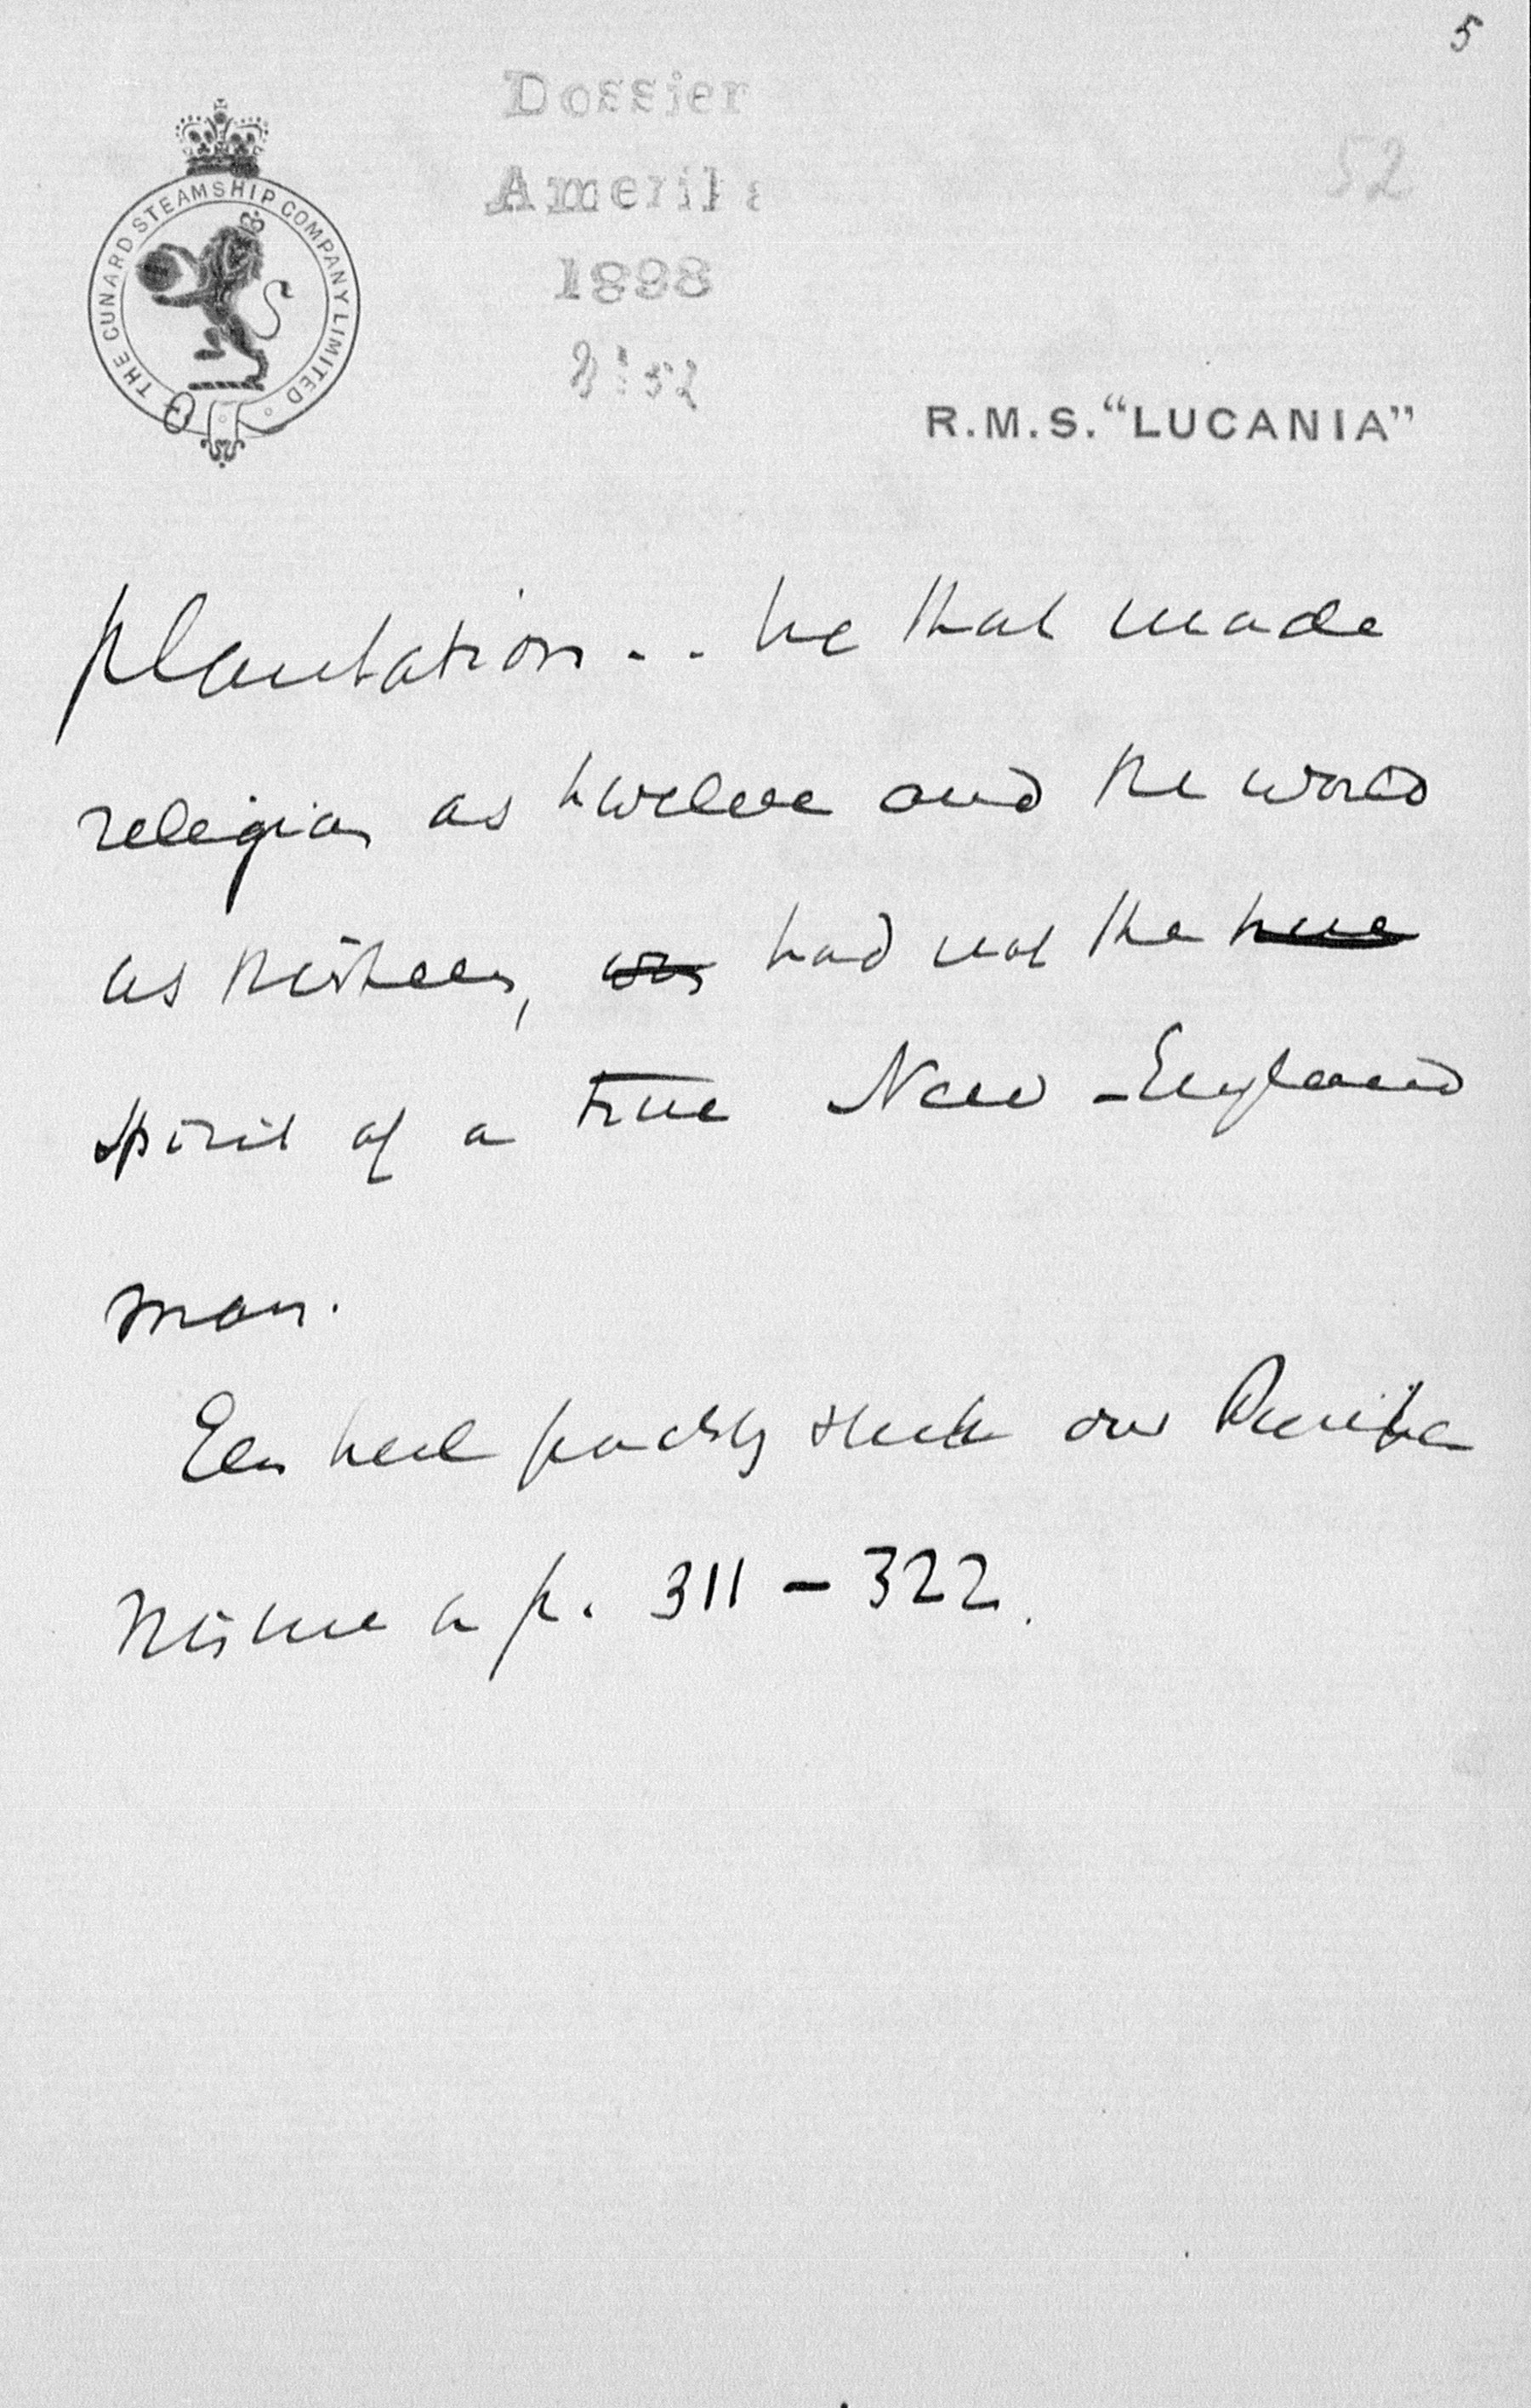 5
Dossier
Amerika
1898
8:52
52
THE CUNARD STEAMSHIP COMPANY LIMITED
R.M.S. "LUCANIA"
plantation . . he that made
religion as twelve and the world
as thirteen, was had not the true
spirit of a true New-England
man.
Een heel stuk over Purita
nisme p. 311 – 322.